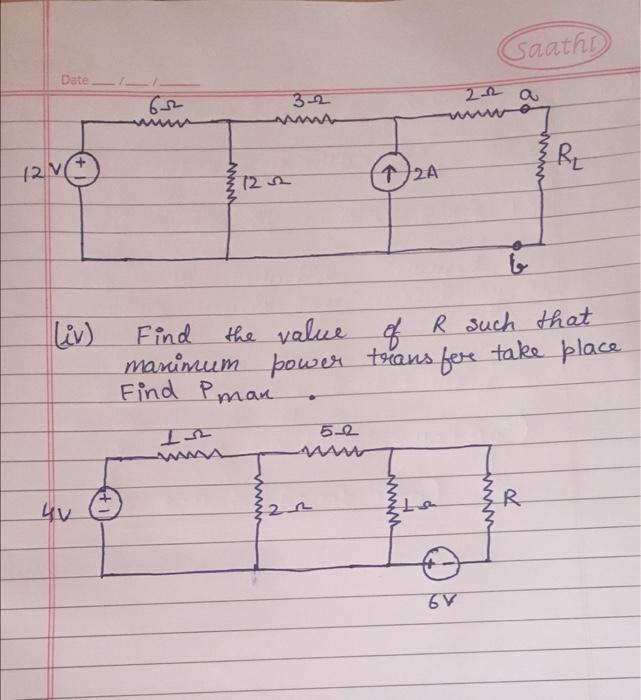 Saathi
Date __/__/____
6Ω 3Ω 2Ω a
12 V + - 12 Ω 2A R_L
b
(iv) Find the value of R such that
manimum power transfere take place
Find Pman .
1Ω 5Ω
4V + - 2Ω 1Ω R
+ -
6V